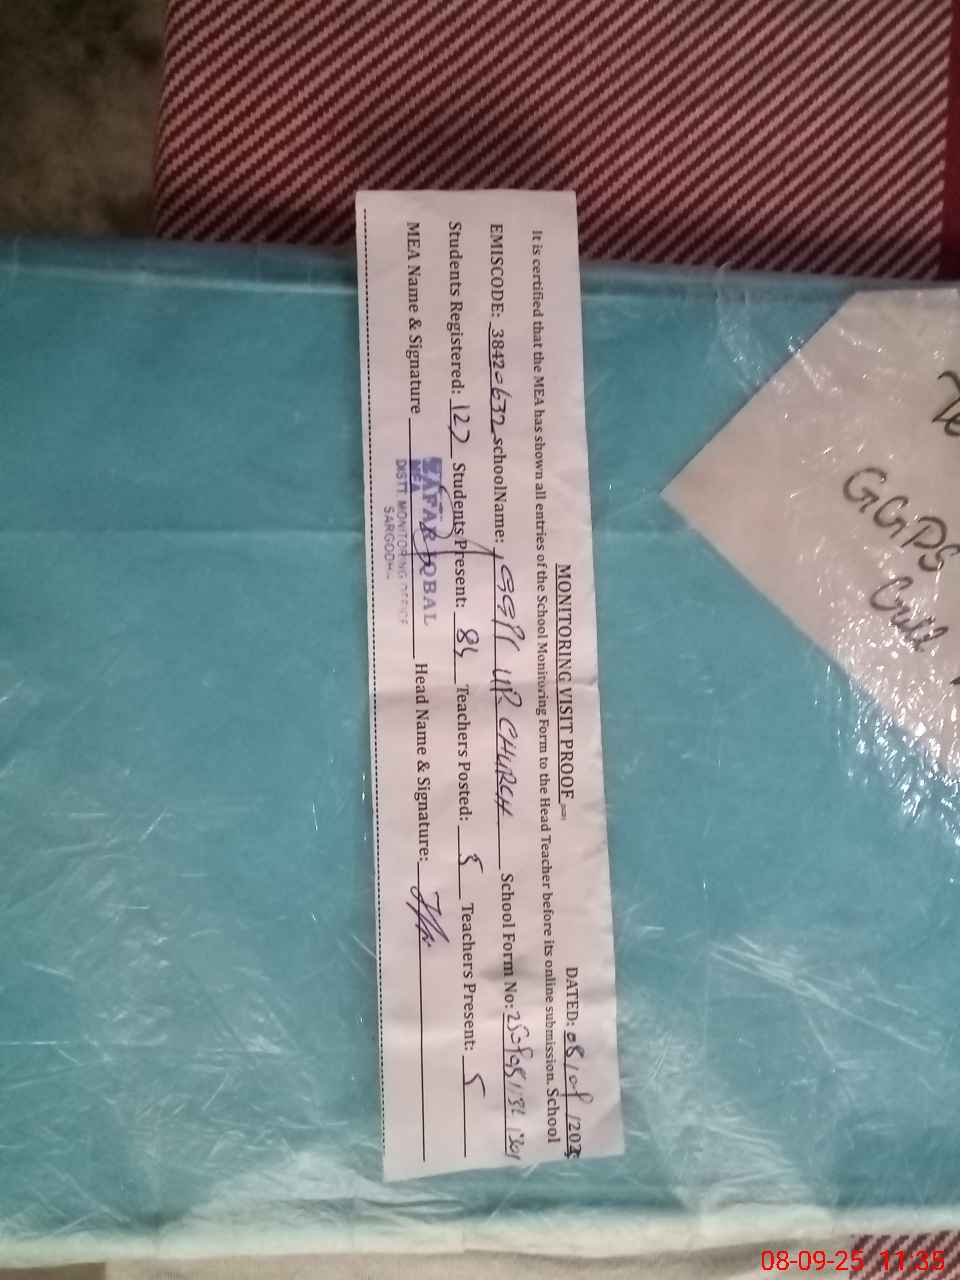 MONITORING VISIT PROOF
DATED: 08/09/2025
It is certified that the MEA has shown all entries of the School Monitoring Form to the Head Teacher before its online submission. School
EMISCODE: 38420632 schoolName: GGPS UR CHURCH School Form No:
Students Registered: 127 Students Present: 84 Teachers Posted: 5 Teachers Present: 5
MEA Name & Signature Head Name & Signature:
ZAFAR IQBAL
MEA
DISTT. MONITORING OFFICE
SARGODHA
GGPS
08-09-25 11:35